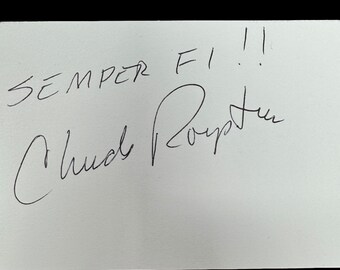 SEMPER FI!!
Chuck Royster